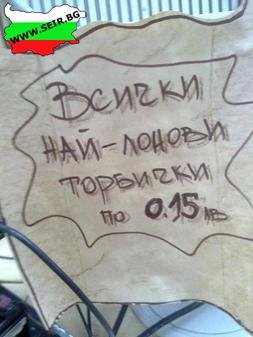 WWW.SEIR.BG
Всички
най-лонови
торбички
по 0.15 лв